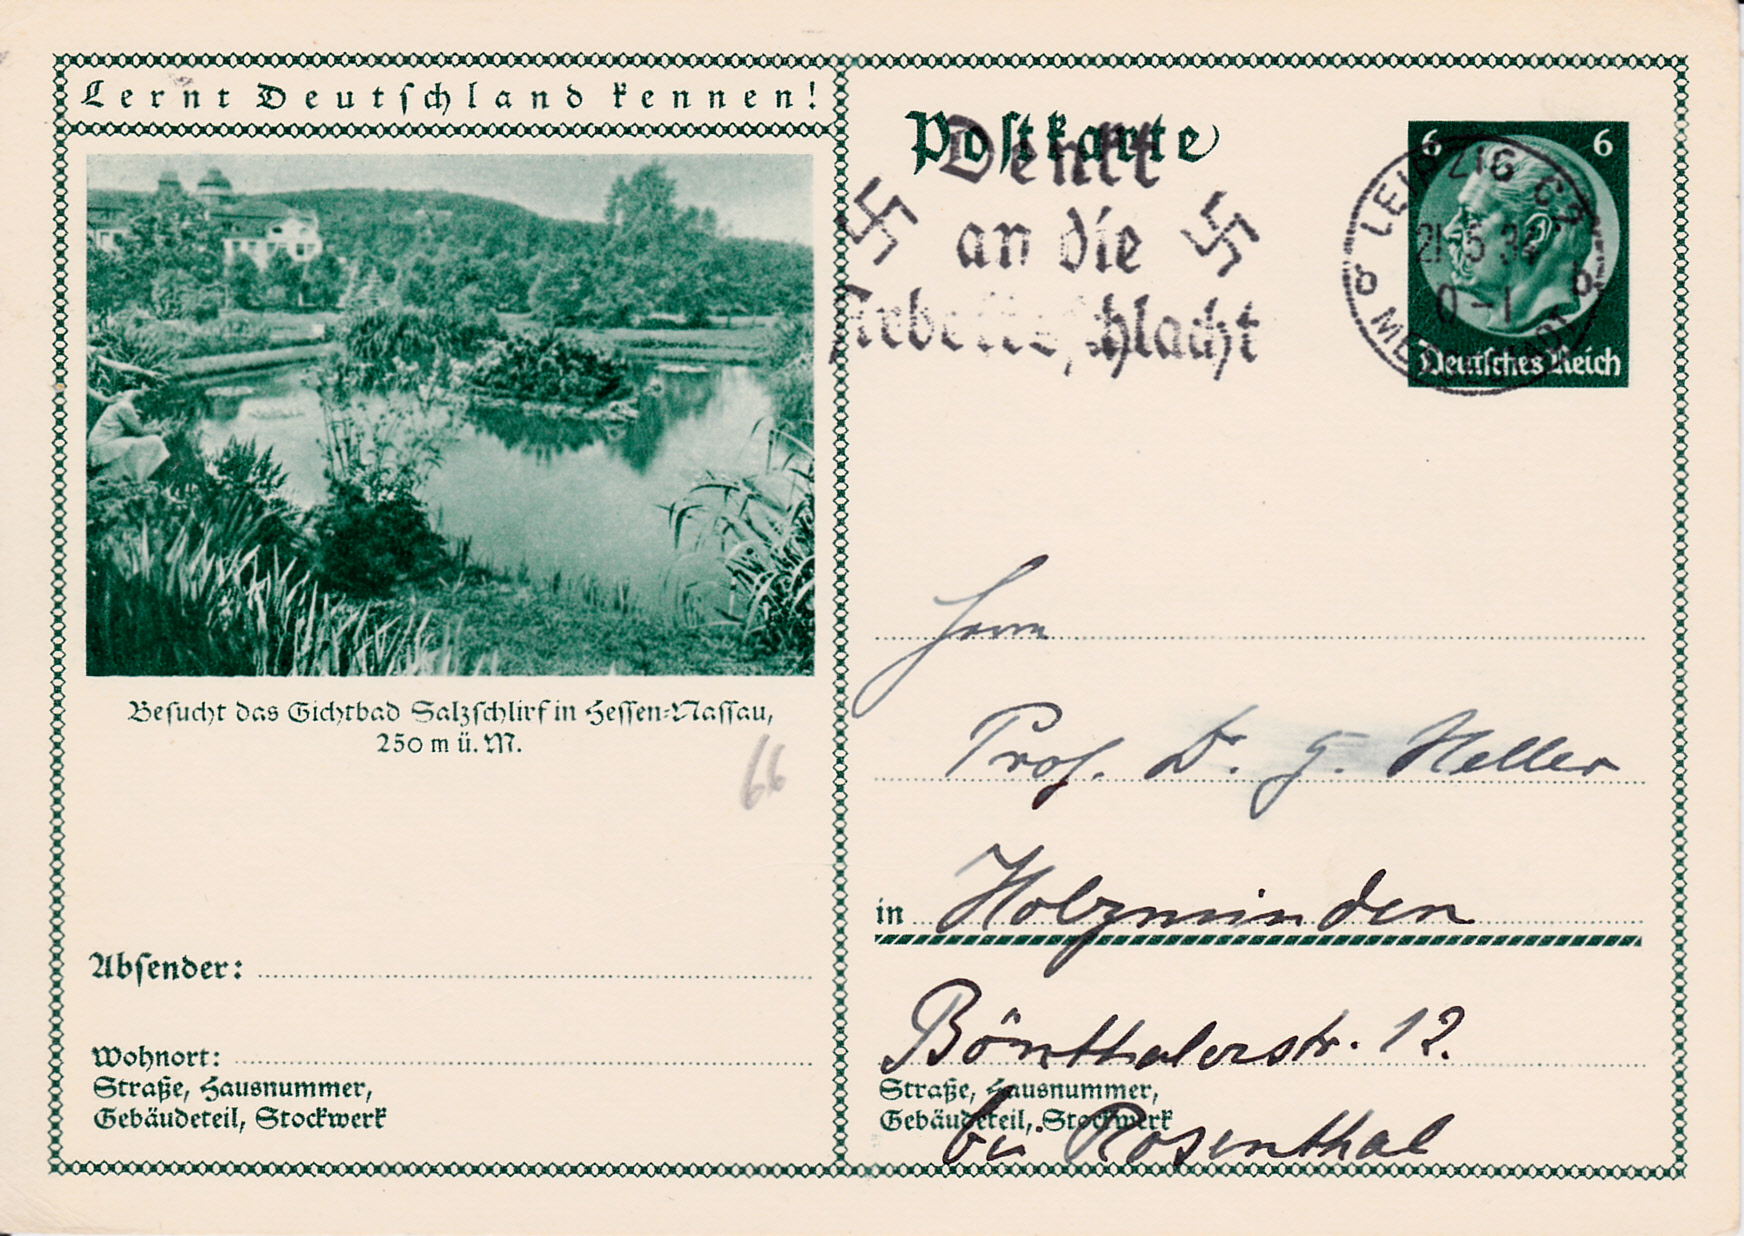 Lernt Deutschland kennen!
Besucht das Gichtbad Salzschlirf in Hessen-Nassau,
250 m ü. M.
66
Absender:
Wohnort:
Straße, Hausnummer,
Gebäudeteil, Stockwerk
Postkarte
Denkt
an die
Arbeitsschlacht
6 6
LEIPZIG C2
b b
0-1
MESSESTADT
Deutsches Reich
Herrn
Prof. Dr. G. Heller
in Holzminden
12.
Straße, Hausnummer,
Gebäudeteil, Stockwerk
bei Rosenthal